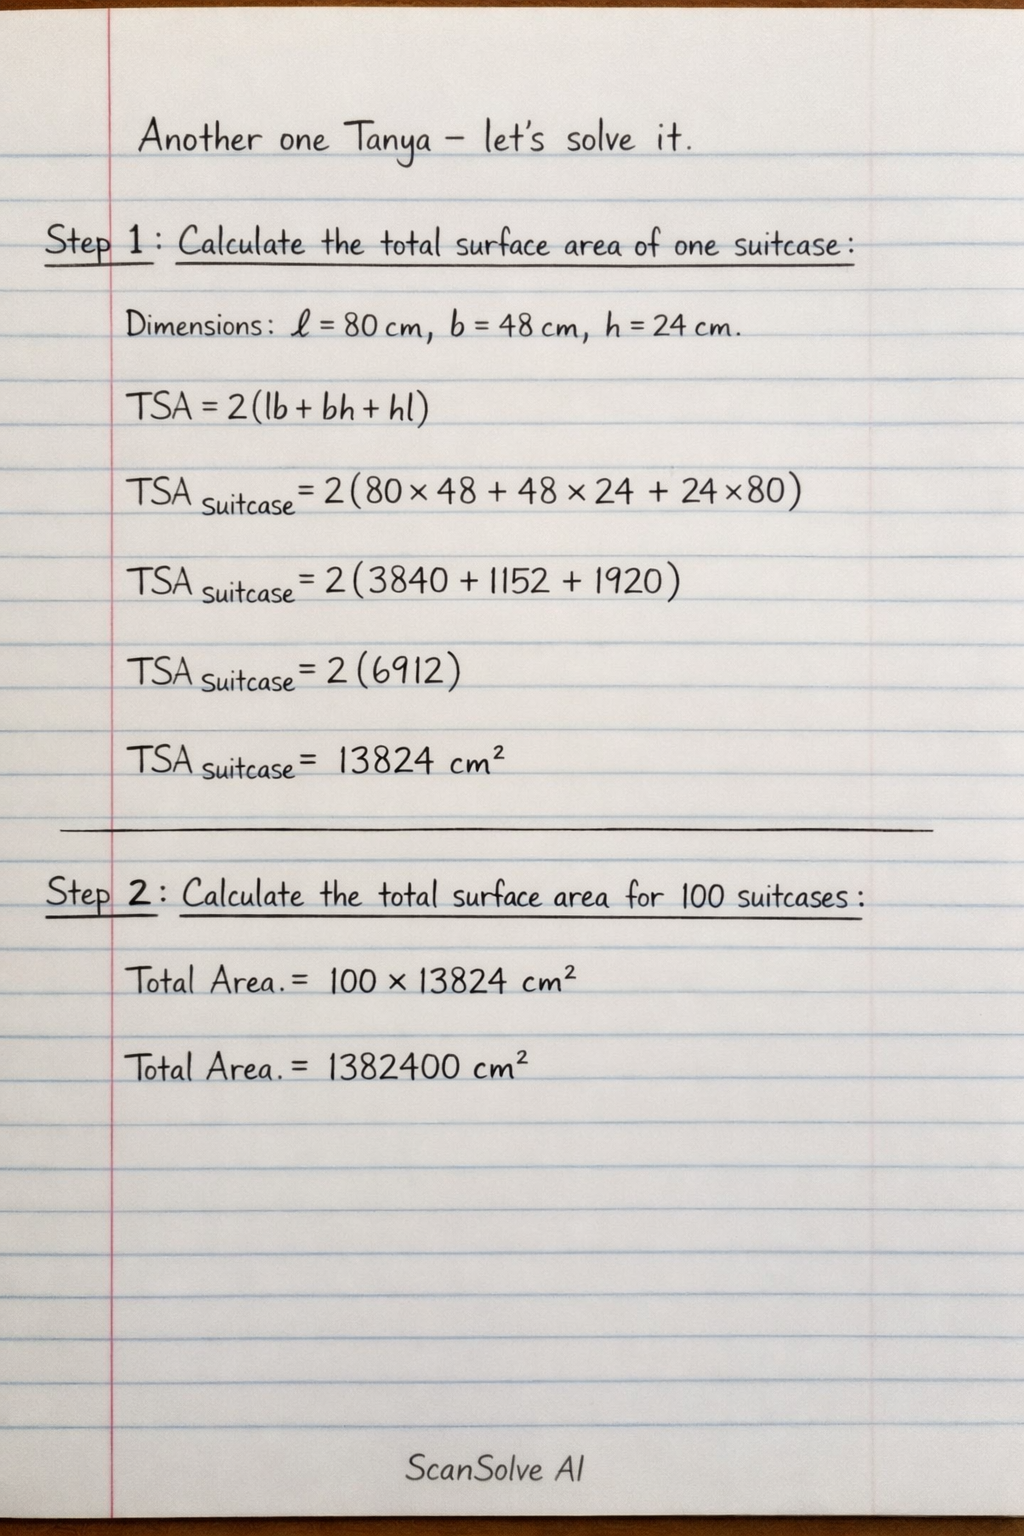 Another one Tanya – let's solve it.
Step 1: Calculate the total surface area of one suitcase:
Dimensions: ℓ = 80 cm, b = 48 cm, h = 24 cm.
TSA = 2(lb + bh + hl)
TSA suitcase = 2(80 × 48 + 48 × 24 + 24 × 80)
TSA suitcase = 2(3840 + 1152 + 1920)
TSA suitcase = 2(6912)
TSA suitcase = 13824 cm²
Step 2: Calculate the total surface area for 100 suitcases:
Total Area. = 100 × 13824 cm²
Total Area. = 1382400 cm²
ScanSolve AI